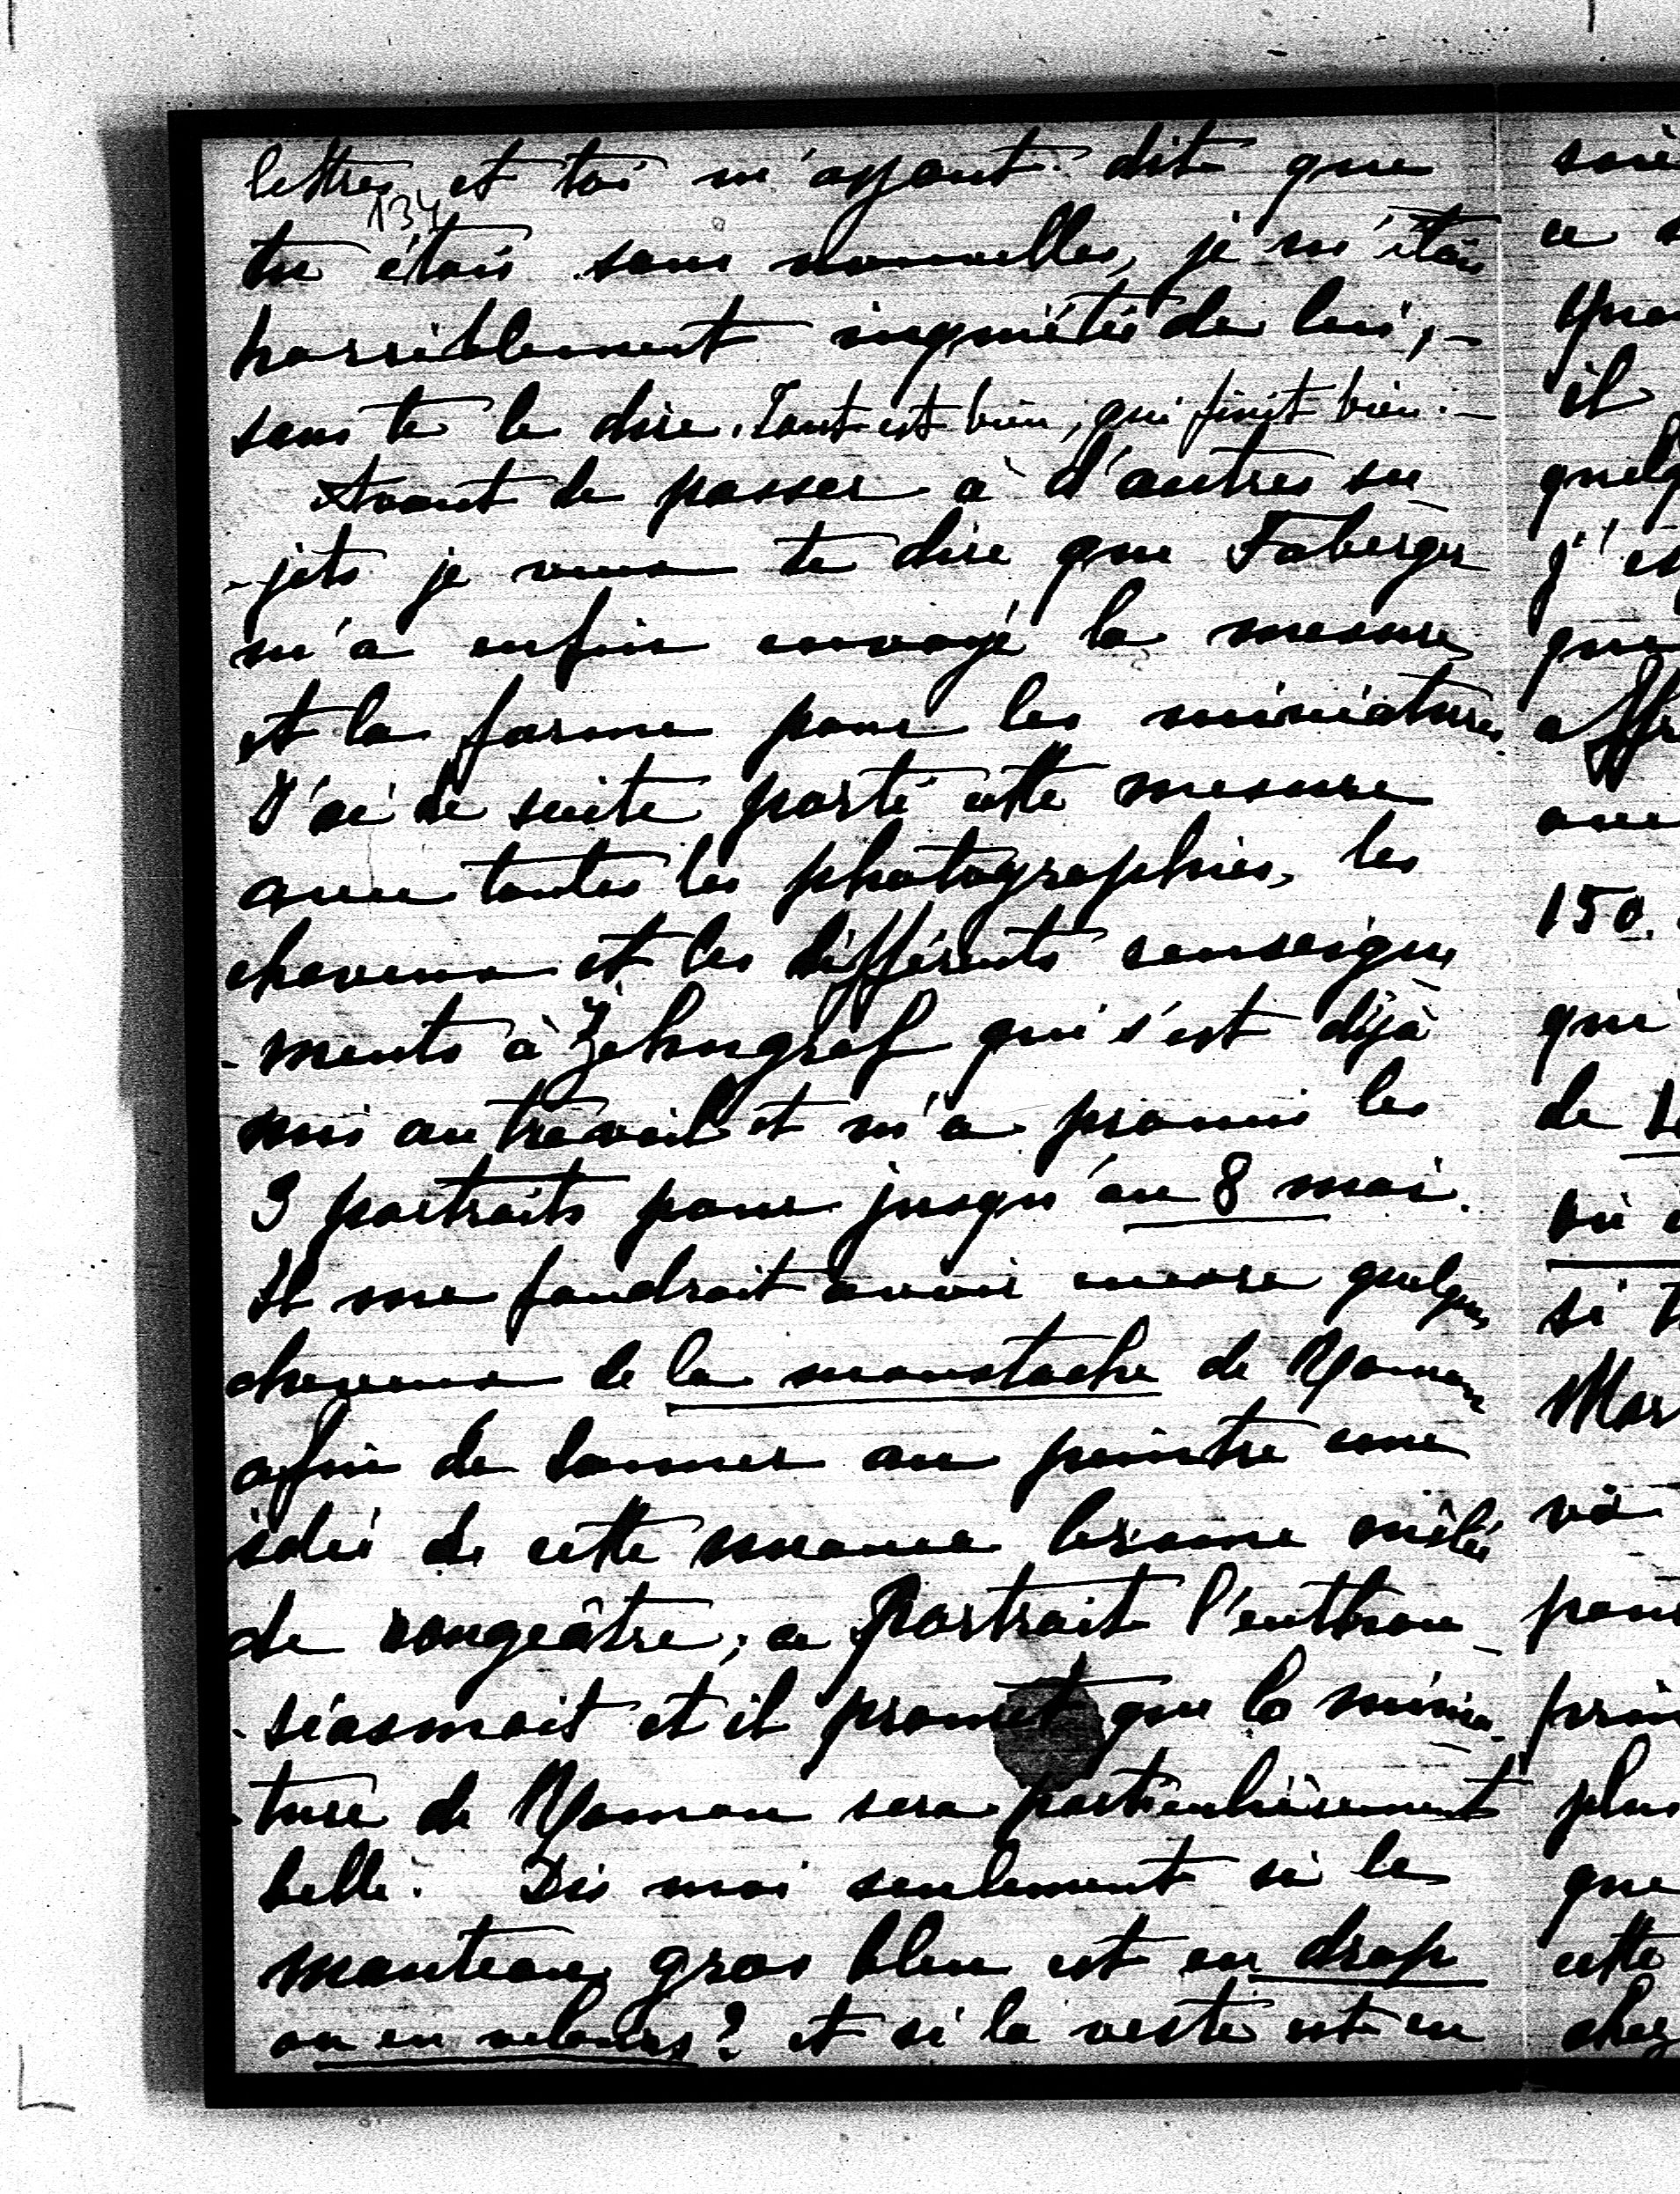 lettres et toi m'ayant dit que
134
tu étais sans nouvelles, je m'étais
horriblement inquiétée de lui, –
sans te le dire. Tout est bien, qui finit bien. –
Avant de passer à d'autres su
-jets je veux te dire que Faberge
m'a enfin envoyé la mesure
et la forme pour les miniatures.
J'ai de suite porté cette mesure
avec toutes les photographies, les
cheveux et les différents renseigne
-ments à Zehngraf qui s'est déjà
mis au travail et m'a promis les
3 portraits pour jusqu'au 8 mai.
Il me faudrait avoir encore quelques
cheveux de la moustache de
afin de donner au peintre une
idée de cette nuance brune mêlée
de rougeâtre; ce portrait l'enthou-
-siasmait et il promet que la minia-
-ture de sera particulièrement
belle. Dis moi seulement si le
manteau gros bleu est en drap
ou en velours? et si la veste est en
ce
il
que
150.
qui
de
où
si
va
plus
que
cette
chez